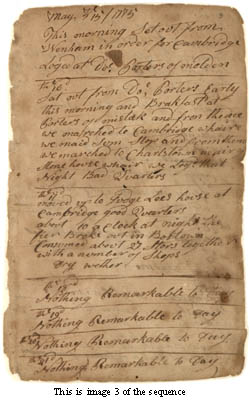 May ye 15 / 1775
This morning Set out from
Wenham in order for Cambridge
Loged at Docr Porters of molden
the 16
Sat out from Docr Porters Early
this morning and Brakfast at
Porters of mistak and from thence
we marched to Cambridge whair
we maid Sum Stop and from thence
we marched to Charlston in at an
Alehouse whair we Logd that
Night Bad Quarters
the 17
moved up to Judge Lees house at
Cambridge good Quarters
about 10 a Clock at night the
fier Brake out in Bostown
Consumed about 27 Stors together
with a number of Shops
Dry wether
the 18
Nothing Remarkable to Day
the 19
Nothing Remarkable to Day
the 20
Nothing Remarkable to Day
the 21
Nothing Remarkable to Day
This is image 3 of the sequence